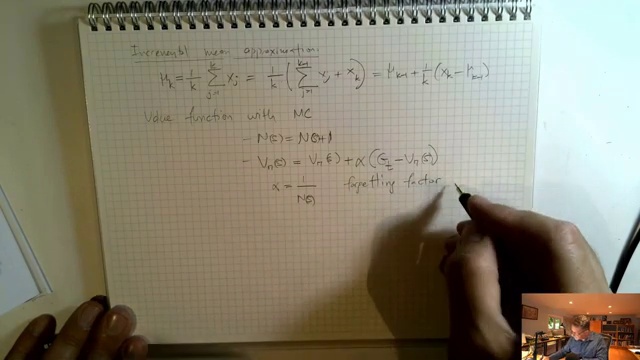 Incremental mean approximation:
μ_k = 1/k ∑_{j=1}^{k} x_j = 1/k ( ∑_{j=1}^{k-1} x_j + x_k ) = μ_{k-1} + 1/k ( x_k − μ_{k-1} )
Value function with MC
- N(s) = N(s)+1
- V_π(s) = V_π(s) + α ( G_t − V_π(s) )
α = 1/N(s) forgetting factor